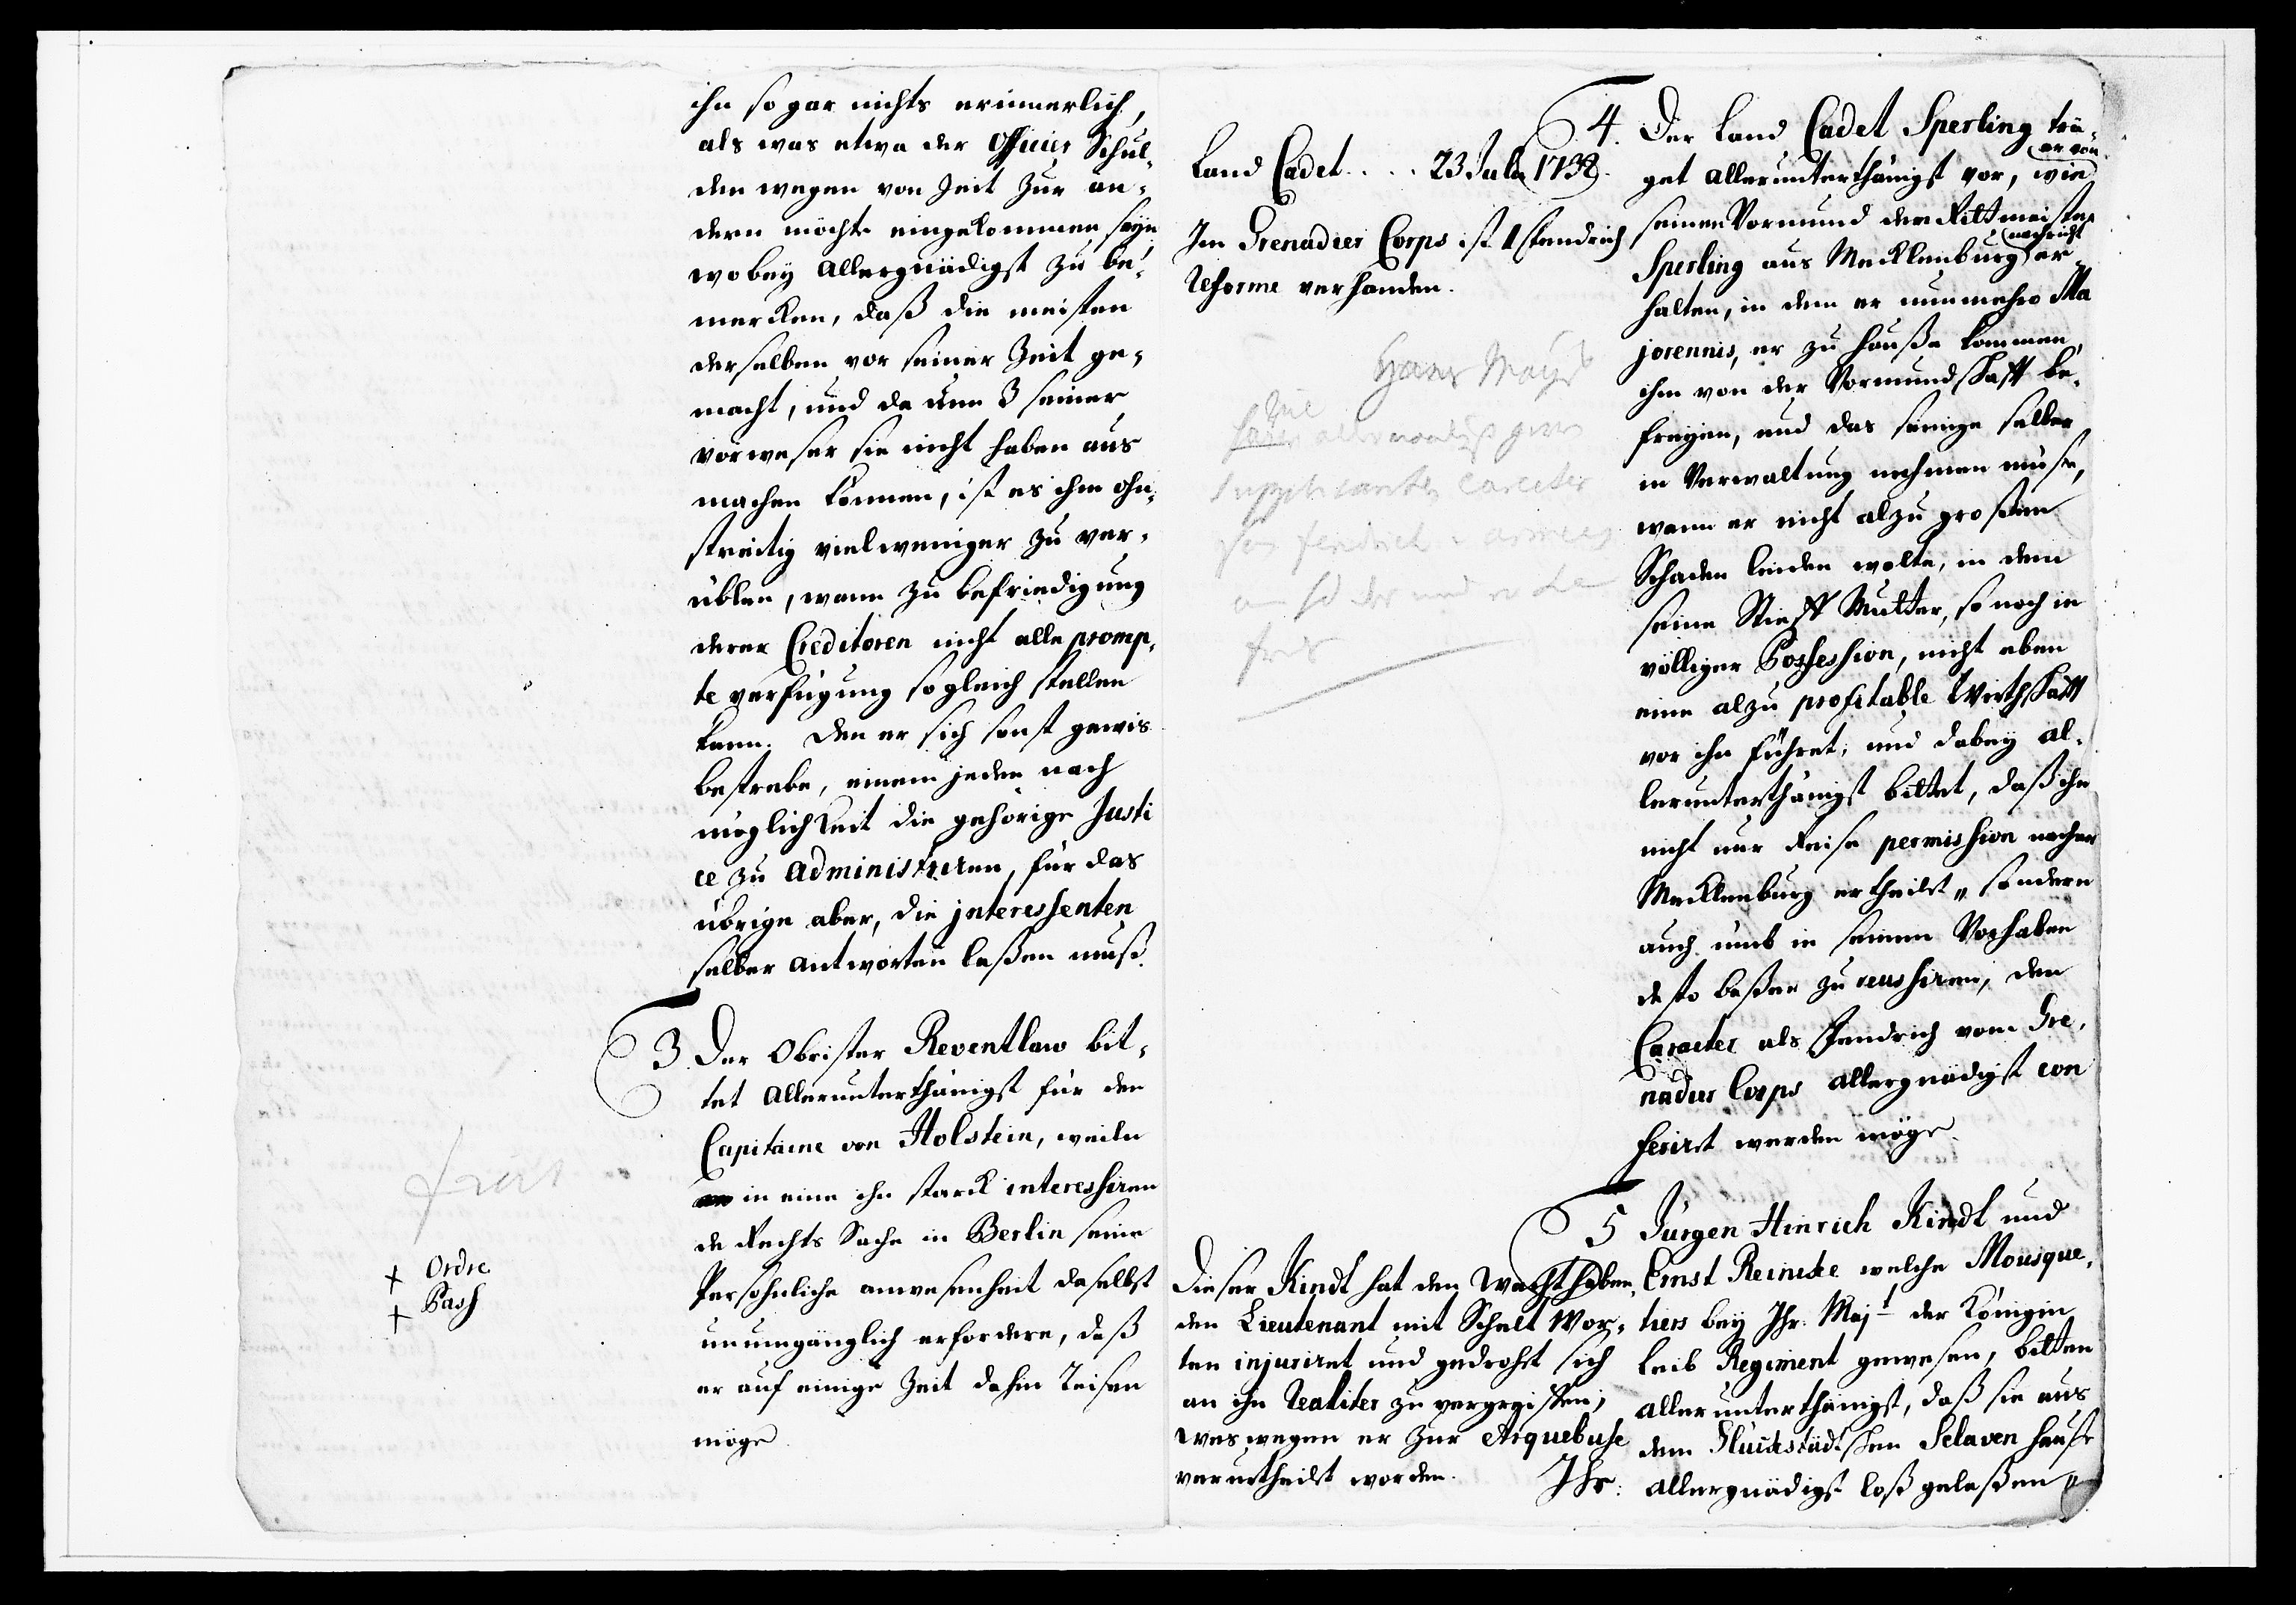 ihn so gar nichts erinnerlich,
als was etwa der Officier Schul„
den wegen von Zeit zur an„
dern möchte eingekommen seyn
wobey allergnädigst zu be„
mercken, daß die meisten
derselben vor seiner Zeit ge„
macht, und da denn 3 seiner
vorweser sie nicht haben aus
machen können, ist es ihm ohn„
streitig vielweniger zu ver„
üblen, wann zu befriedigung
derer Creditoren nicht alle promp„
te verfügung sogleich stellen
kann. Den er sich sonst gewis
bestrebe, einem jeden nach
müglichkeit die gehörige Justi
ce zu administriren, für das
übrige aber, die jnteressenten
selber antworten laßen muß.
3. Der Obrister Reventlaw bit„
tet allerunterthänigst für den
Capitaine von Holstein, weiln
in eine ihn starck interessiren
de Rechts Sache in Berlin seine
Persöhnliche anwesenheit daselbst
unumgänglich erfordere, daß
er auf einige Zeit dahin Reisen
möge
fiat
+ Ordre
+ Pass
Land Cadet.... 23 July 1738.
Im Grenadier Corps ist 1 Fendrich
Reforme verhanden.
Hans Mayst
allernädigst
Supplicanten Caracter
fendrich
4. Der Land Cadet Sperling trä„
get allerunterthänigst vor, wie er von
seinen Vormund den Rittmeister
Sperling aus Mecklenburg nachricht er„
halten, in dem er nunmehro Ma
jorennis, er zu Hauße kommen,
ihn von der Vormundschafft be„
freyen, und das seinige selber
in Verwaltung nehmen müste,
wann er nicht alzu großen
Schaden leiden wolte, in dem
seine Stieff Mutter, so noch in
völliger Possession, nicht eben
eine alzu profitable Wirthschafft
vor ihn führet; und dabey al„
lerunterthänigst bittet, daß ihn
nicht nur Reise permission nacher
Mecklenburg ertheilet„ sondern
auch umb in seinem Vorhaben
desto beßer zu reussiren, den
Caracter als Fendrich vom Gre„
nadier Corps allergnädigst con
feriret werden möge.
Dieser Kindt hat den Wachthaben„
den Lieutenant mit Schelt Wor„
ten injuriret und gedrohet sich
an ihn Realiter zu vergreiffen;
weswegen er zur Arquebuse
verurtheilet worden.
Ihr:
5 Jürgen Hinrich Kindt und
Ernst Reincke welche Mousque„
tiers bey Ihr. Majt der Königin
Leib Regiment gewesen, bitten
allerunterthänigst, daß sie aus
dem Glückstädtschen Sclaven Hause
allergnädigst loß gelaßen„